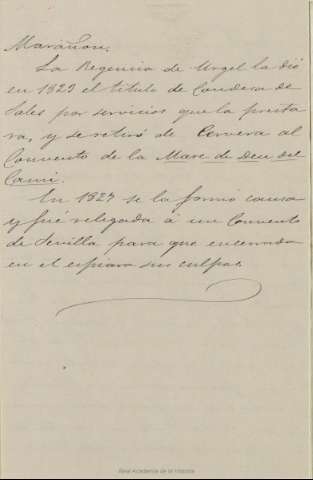 Marañon.
La Regencia de Urgel la dió
en 1823 el titulo de Condesa de
Sales por servicios que la presta
ra, y se retiró de Cervera al
Convento de la Mare de Deu del
Camí.
En 1827 se la formó causa
y fué relegada á un Convento
de Sevilla para que encerrada
en el espiara sus culpas.
Real Academia de la Historia